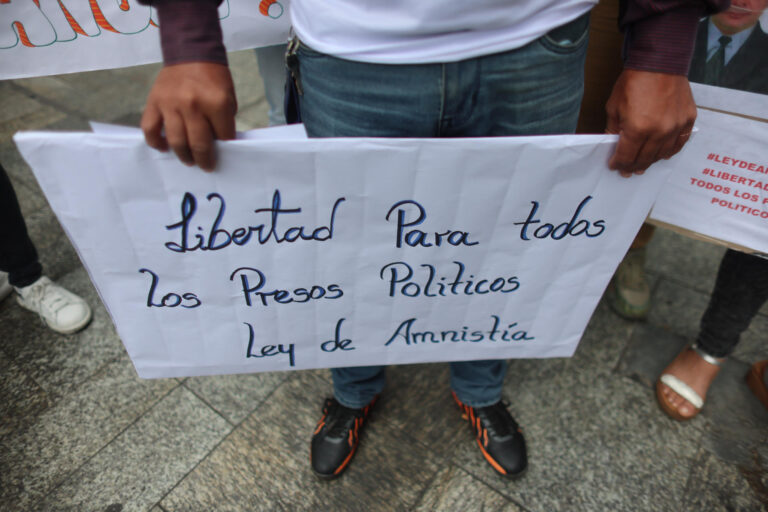 Libertad Para todas
los Presos Políticos
Ley de Amnistía
#LIBERTAD
TODOS LOS
POLITICO